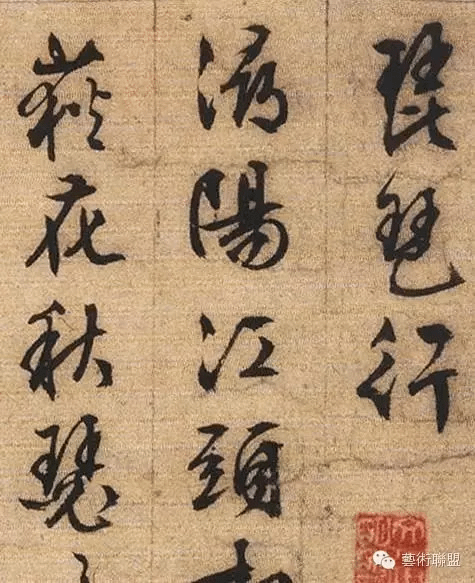 琵琶行
潯陽江頭
荻花秋瑟
藝術聯盟